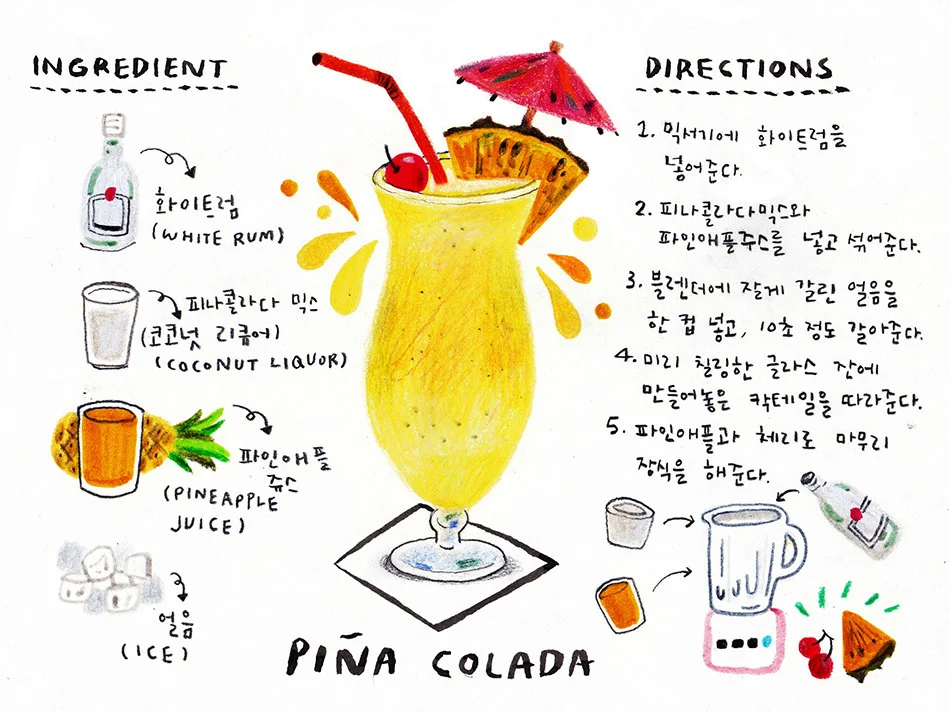 INGREDIENT
화이트럼
(WHITE RUM)
피나콜라다 믹스
(코코넛 리큐어)
(COCONUT LIQUOR)
파인애플
쥬스
(PINEAPPLE
JUICE)
얼음
(ICE)
PIÑA COLADA
DIRECTIONS
1. 믹서기에 화이트럼을
넣어준다.
2. 피나콜라다믹스와
파인애플주스를 넣고 섞어준다.
3. 블렌더에 잘게 갈린 얼음을
한 컵 넣고, 10초 정도 갈아준다.
4. 미리 칠링한 글라스 잔에
만들어놓은 칵테일을 따라준다.
5. 파인애플과 체리로 마무리
장식을 해준다.